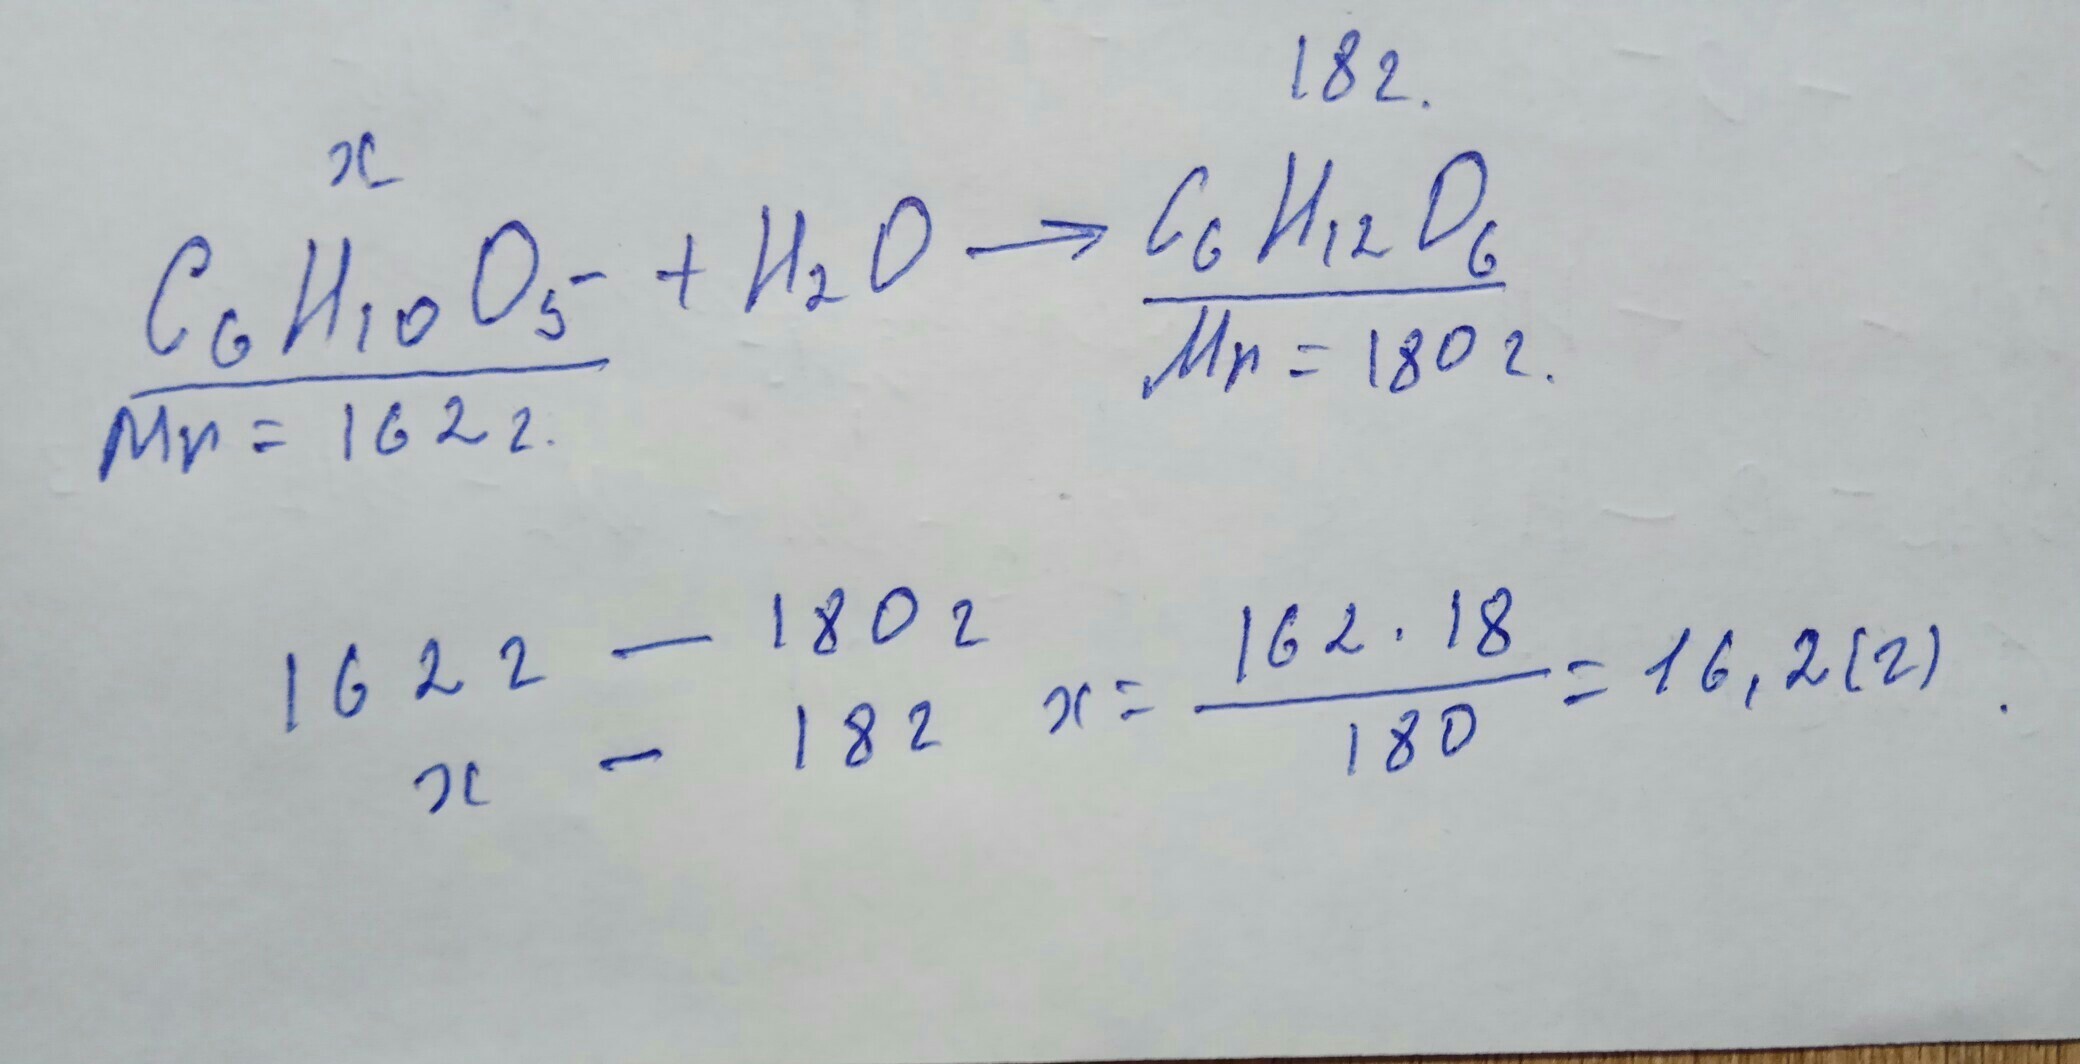 x 18г.
C₆H₁₀O₅ + H₂O → C₆H₁₂O₆
Mr = 162г. Mr = 180г.
162г — 180г x = 162 · 18 / 180 = 16,2(г).
x – 18г